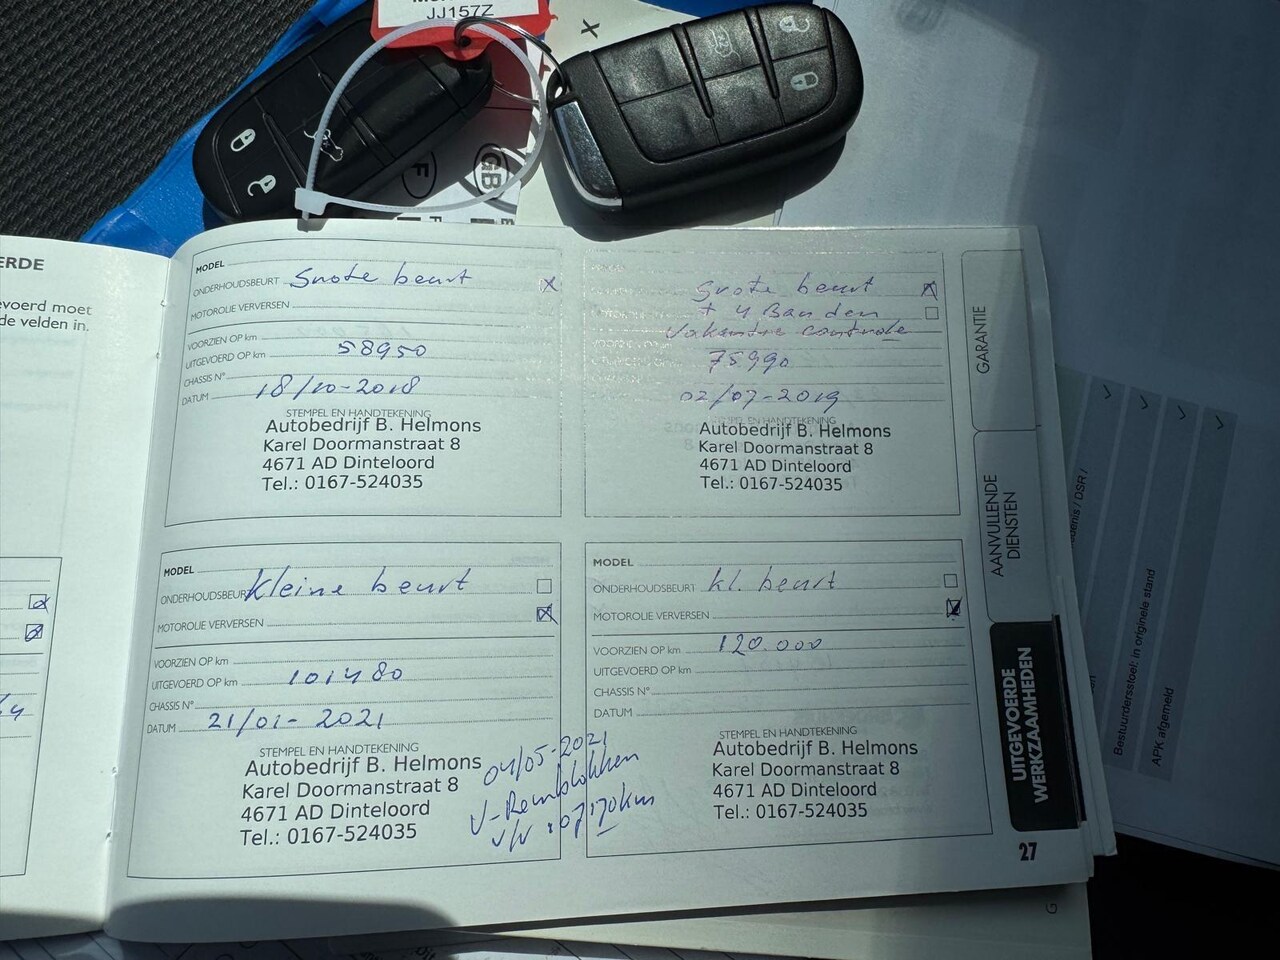 JJ157Z
X
GB
F
ERDE
evoerd moet
de velden in.
MODEL
ONDERHOUDSBEURT Grote beurt X
MOTOROLIE VERVERSEN
VOORZIEN OP km
UITGEVOERD OP km 58950
CHASSIS N°
DATUM 18/10-2018
STEMPEL EN HANDTEKENING
Autobedrijf B. Helmons
Karel Doormanstraat 8
4671 AD Dinteloord
Tel.: 0167-524035
Grote beurt X
+ 4 Banden
Vakantie controle
75990
02/07-2019
STEMPEL EN HANDTEKENING
Autobedrijf B. Helmons
Karel Doormanstraat 8
4671 AD Dinteloord
Tel.: 0167-524035
MODEL
ONDERHOUDSBEURT kleine beurt
MOTOROLIE VERVERSEN X
VOORZIEN OP km
UITGEVOERD OP km 101480
CHASSIS N°
DATUM 21/01-2021
STEMPEL EN HANDTEKENING
Autobedrijf B. Helmons
Karel Doormanstraat 8
4671 AD Dinteloord
Tel.: 0167-524035
04/05-2021
V-Remblokken
107170km
MODEL
ONDERHOUDSBEURT kl. beurt
MOTOROLIE VERVERSEN X
VOORZIEN OP km 120.000
UITGEVOERD OP km
CHASSIS N°
DATUM
STEMPEL EN HANDTEKENING
Autobedrijf B. Helmons
Karel Doormanstraat 8
4671 AD Dinteloord
Tel.: 0167-524035
GARANTIE
AANVULLENDE
DIENSTEN
UITGEVOERDE
WERKZAAMHEDEN
27
Bestuurdersstoel: in originele stand
APK afgemeld
G